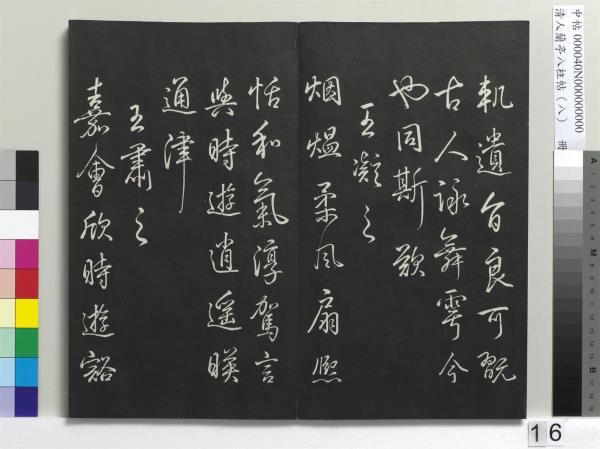 中帖 000040N000000000 冊
清人蘭亭八柱帖（八）
軌遺音良可翫
古人詠舞雩今
也同斯歡
王凝之
烟熅柔風扇熈
怡和氣淳駕言
與時遊逍遥暎
通津
王肅之
嘉會欣時遊豁
16